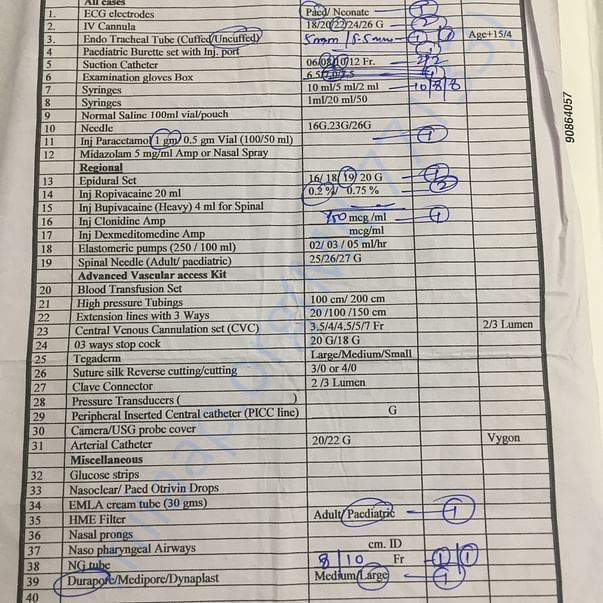 All cases
1. ECG electrodes Paed/ Neonate 1
2. IV Cannula 18/20/22/24/26 G 2
3. Endo Tracheal Tube (Cuffed/Uncuffed) 5mm / 5.5mm 1 1 Age+15/4
4 Paediatric Burette set with Inj. port 1
5 Suction Catheter 06/08/10/12 Fr. 2/2
6 Examination gloves Box 6.5/7.0/7.5 1
7 Syringes 10 ml/5 ml/2 ml 10/8/8
8 Syringes 1ml/20 ml/50
9 Normal Saline 100ml vial/pouch
10 Needle 16G,23G/26G
11 Inj Paracetamol 1 gm/ 0.5 gm Vial (100/50 ml) 1
12 Midazolam 5 mg/ml Amp or Nasal Spray
Regional
13 Epidural Set 16/ 18/ 19/ 20 G 1
14 Inj Ropivacaine 20 ml 0.2 %/ 0.75 % 2
15 Inj Bupivacaine (Heavy) 4 ml for Spinal
16 Inj Clonidine Amp 150 mcg/ml 1
17 Inj Dexmeditomedine Amp mcg/ml
18 Elastomeric pumps (250 / 100 ml) 02/ 03 / 05 ml/hr
19 Spinal Needle (Adult/ paediatric) 25/26/27 G
Advanced Vascular access Kit
20 Blood Transfusion Set
21 High pressure Tubings 100 cm/ 200 cm
22 Extension lines with 3 Ways 20 /100 /150 cm
23 Central Venous Cannulation set (CVC) 3.5/4/4.5/5/7 Fr 2/3 Lumen
24 03 ways stop cock 20 G/18 G
25 Tegaderm Large/Medium/Small
26 Suture silk Reverse cutting/cutting 3/0 or 4/0
27 Clave Connector 2 /3 Lumen
28 Pressure Transducers ( )
29 Peripheral Inserted Central catheter (PICC line) G
30 Camera/USG probe cover
31 Arterial Catheter 20/22 G Vygon
Miscellaneous
32 Glucose strips
33 Nasoclear/ Paed Otrivin Drops
34 EMLA cream tube (30 gms)
35 HME Filter Adult/ Paediatric 1
36 Nasal prongs
37 Naso pharyngeal Airways cm. ID
38 NG tube 8 / 10 Fr 1 1
39 Durapore/Medipore/Dynaplast Medium/Large 1
40
90864057